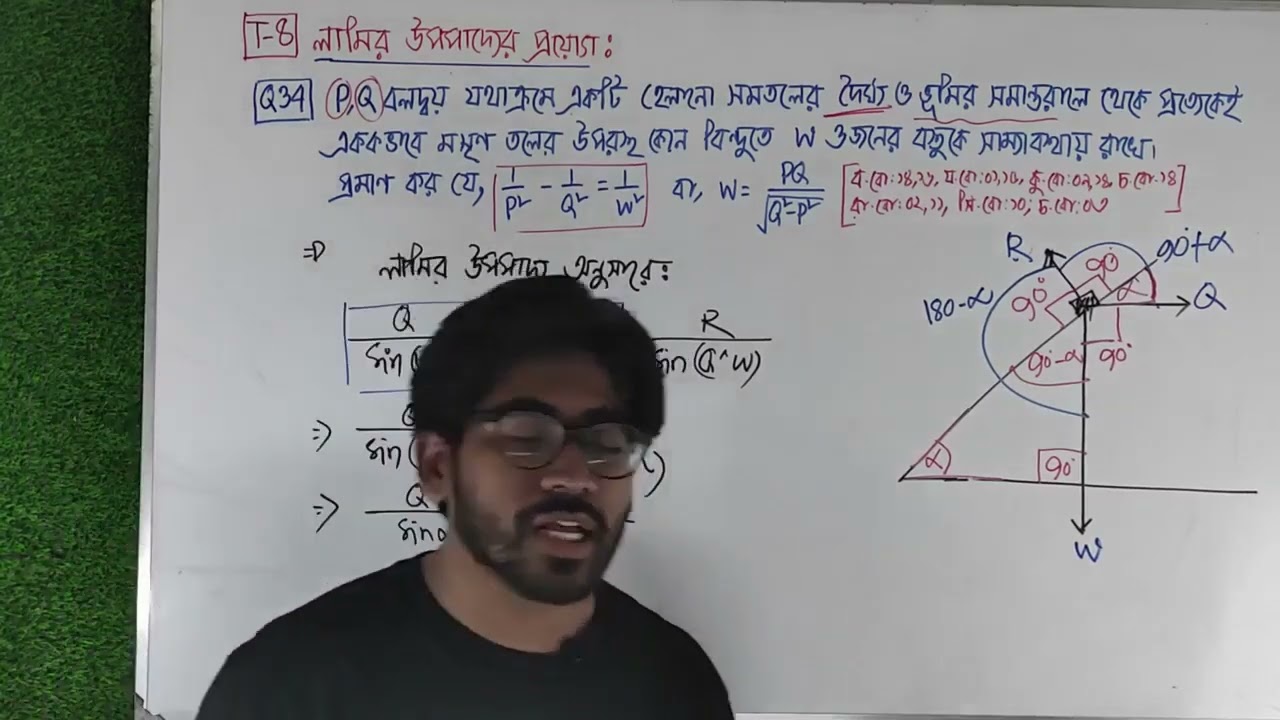 T-8 লামির উপপাদ্যের প্রয়োগ:
Q34 P,Q বলদ্বয় যথাক্রমে একটি হেলানো সমতলের দৈর্ঘ্য ও ভূমির সমান্তরালে থেকে প্রত্যেকেই
এককভাবে মসৃণ তলের উপরস্থ কোন বিন্দুতে W ওজনের বস্তুকে সাম্যাবস্থায় রাখে।
প্রমাণ কর যে, 1/P² - 1/Q² = 1/W² বা, W = PQ/√Q²-P² [ব.বো:১৪,১৬, য.বো:০১,১০, কু.বো:০২,১৪, চ.বো:১৪
রা.বো:০২,১১, সি.বো:১০; চ.বো:০৬]
⇒ লামির উপপাদ্য অনুসারে:
Q/sin( R/sin(Q^W)
⇒ Q/sin(
⇒ Q/sinα
R 90° 90°+α
180-α 90° α Q
90°-α 90°
α 90°
W